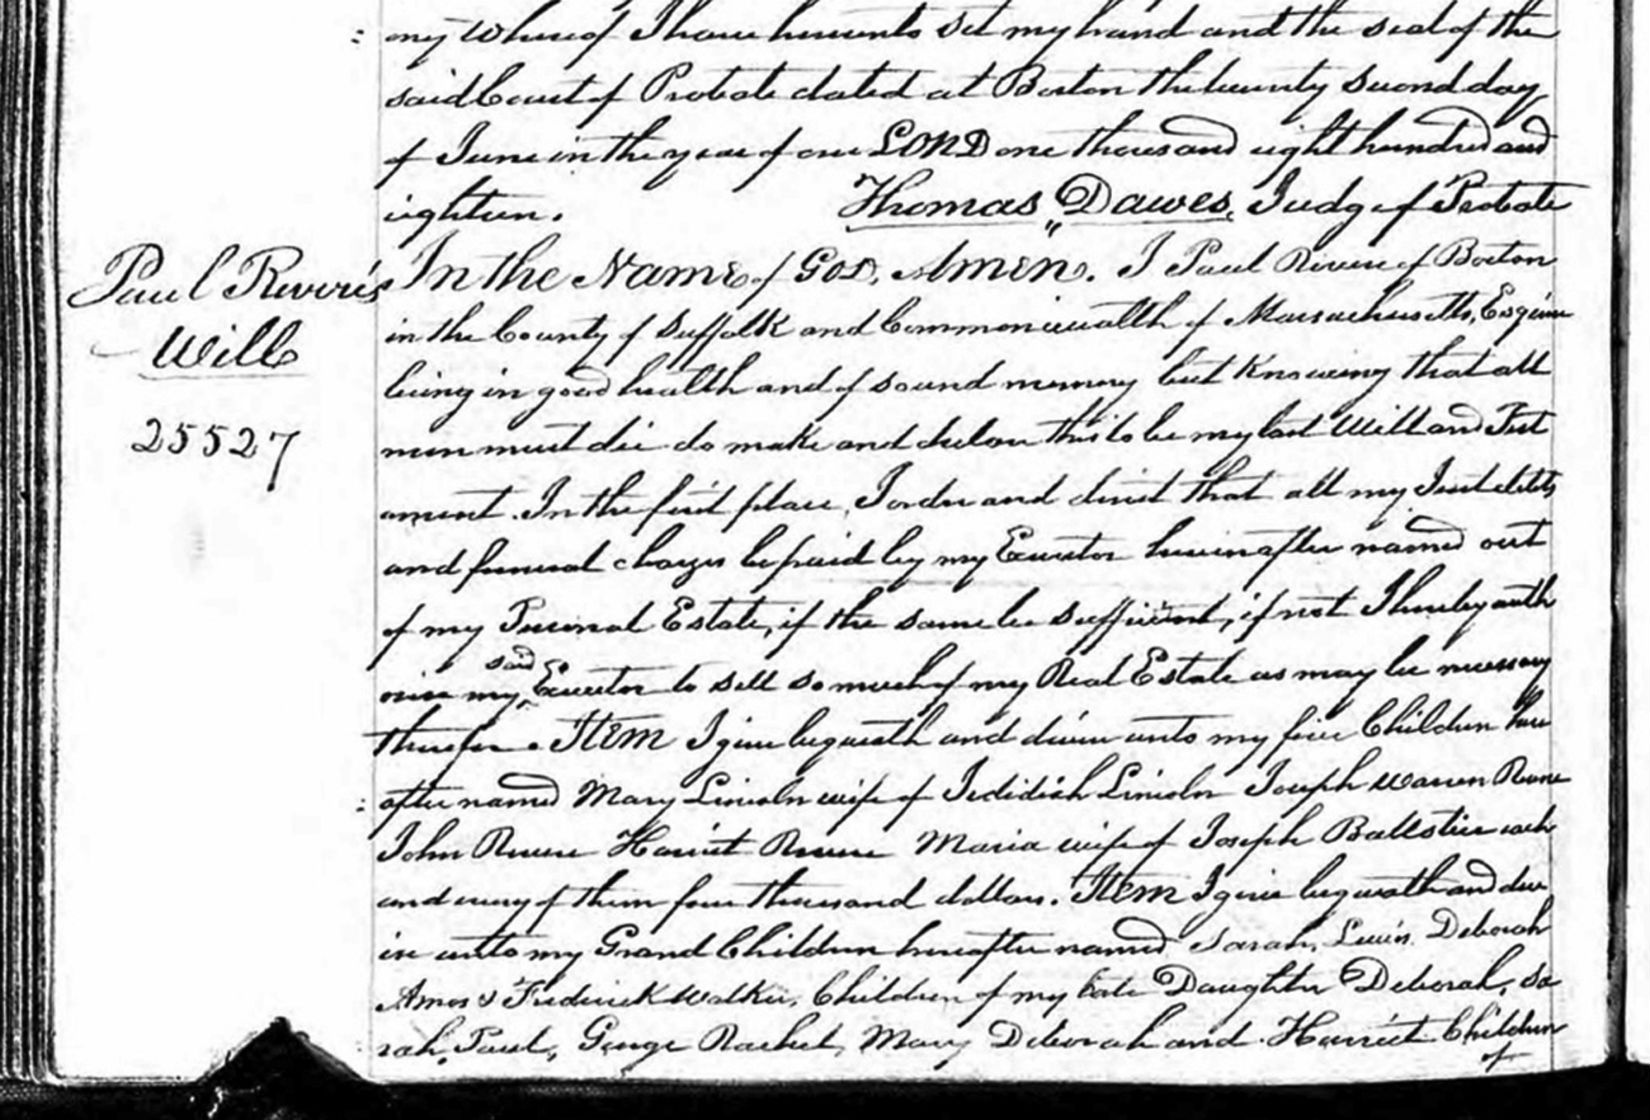 ony Whereof I have hereunto set my hand and the seal of the
said Court of Probate dated at Boston the twenty second day
of June in the year of our LORD one thousand eight hundred and
eighteen. Thomas Dawes, Judge of Probate
Paul Revere's
Will
25527
In the Name of God, Amen. I Paul Revere of Boston
in the County of Suffolk and Commonwealth of Massachusetts, Esquire
being in good health and of sound memory but knowing that all
men must die do make and declare this to be my last Will and Test
ament. In the first place, I order and direct that all my Just debts
and funeral charges be paid by my Executor hereinafter named out
of my Personal Estate, if the same be sufficient, if not I hereby auth
orise my said Executor to sell so much of my Real Estate as may be necessary
therefor. Item I give bequeath and devise unto my five Children here
after named Mary Lincoln wife of Jedidiah Lincoln Joseph Warren Revere
John Revere Harriet Revere Maria wife of Joseph Balestier each
and every of them four thousand dollars. Item I give bequeath and dev
ise unto my Grand Children hereafter named Sarah, Lewis, Deborah
Amos & Frederick Walker, Children of my late Daughter Deborah, Sa
rah, Paul, George Rachel, Mary Deborah and Harriet Children
of